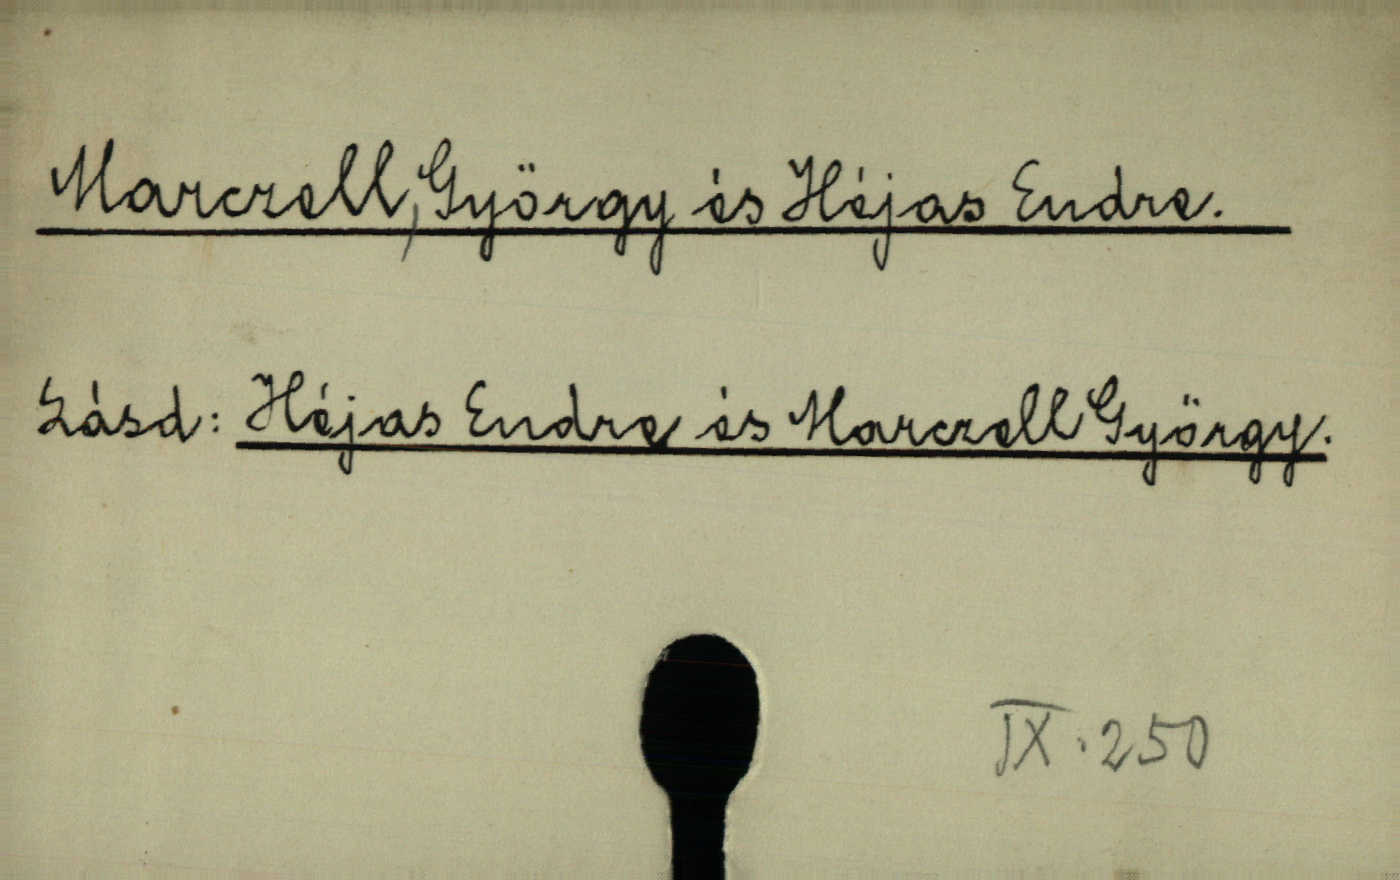 Marczell, György és Héjas Endre.
Lásd: Héjas Endre és Marczell György.
IX. 250